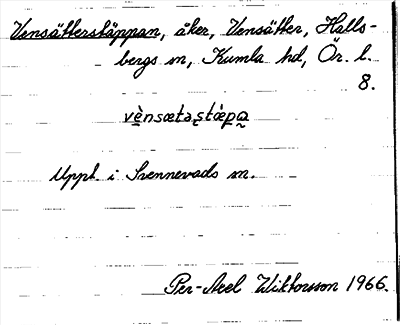 Vensätterstäppan, åker, Vensätter, Halls-
bergs sn, Kumla hd, Ör. l.
8.
vènsætaʂtæ̀pa
Uppt. i Svennevads sn.
Per-Axel Wiktorsson 1966.